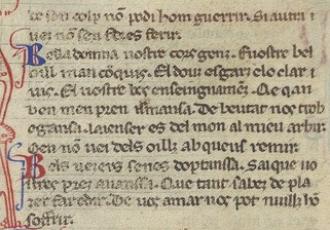 ce son colp nō podi hom guerrir. Si autra i
uei nō sera feres ferir.
Bella domna uostre cors genz. E uostre bel
oill man cōquis. El douz esgart e lo clar i
uis. El uostre bes enseingnamēz. Qe qan
ren men pren esmansa. De beutat nos trob
egansa. La ienser es del mon al mieu arbir.
O en nō uei dels oillz ab qeus remir.
Bels ueiers senes doptanssa. Sai que uo
stres prez auanssa. Que tant sabez de pla
zer far e dir. De uos amar nos pot nuillz hō
soffrir.